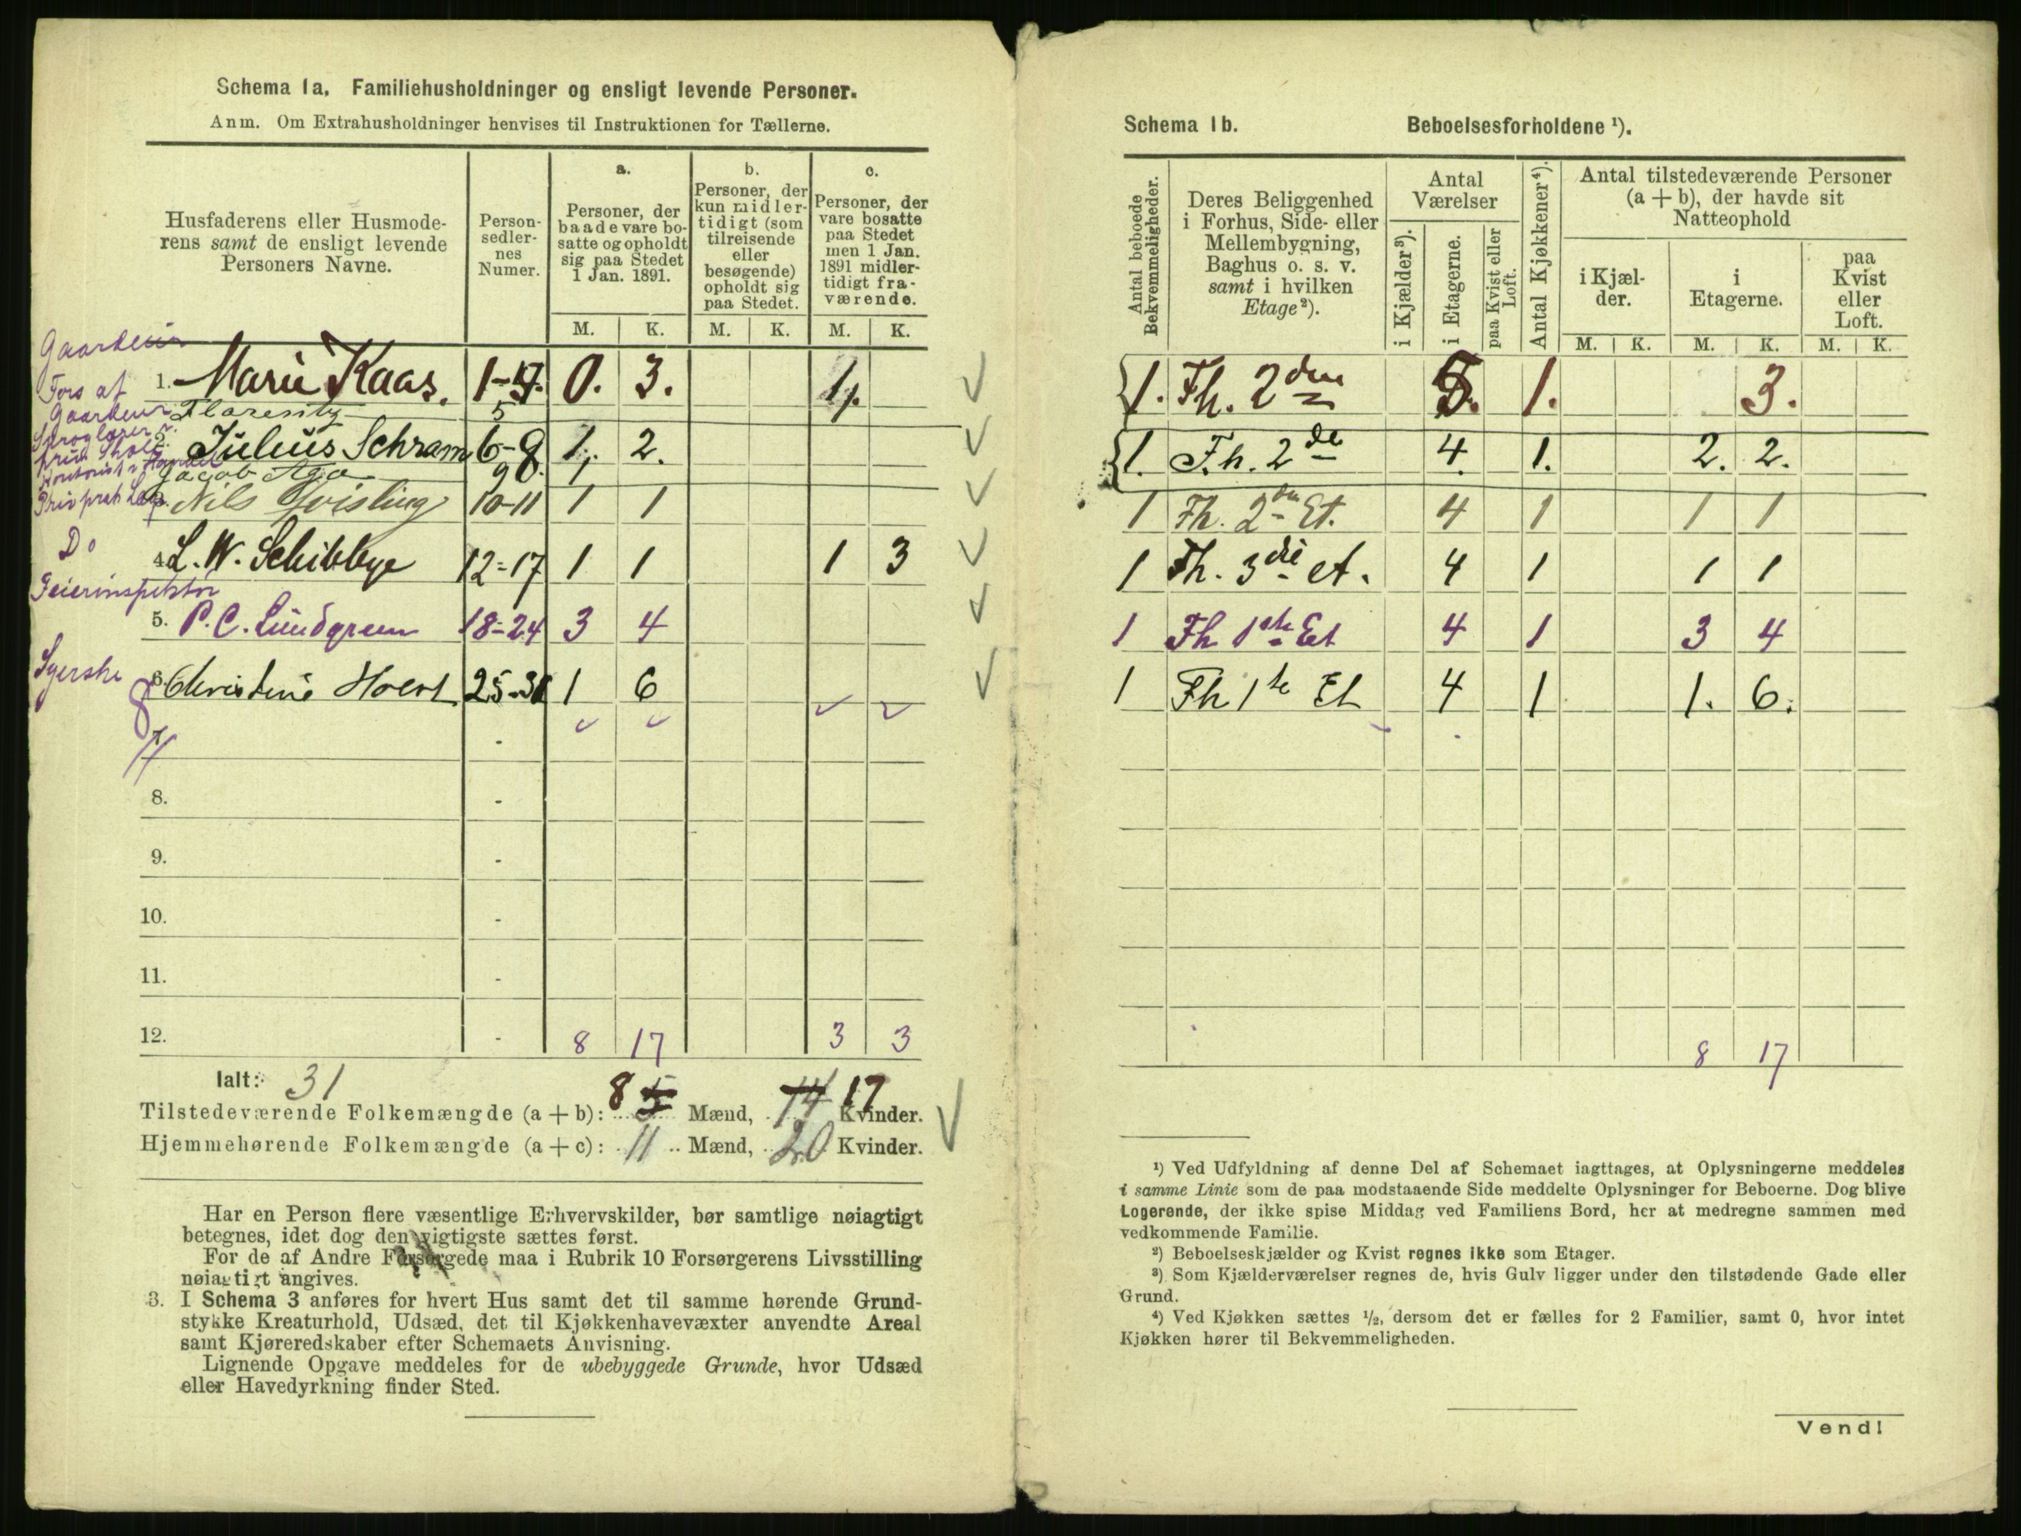 Schema 1a. Familiehusholdninger og ensligt levende Personer.
Anm. Om Extrahusholdninger henvises til Instruktionen for Tællerne.
Husfaderens eller Husmode-
rens samt de ensligt levende
Personers Navne.
Person-
sedler-
nes
Numer.
a.
Personer, der
baade vare bo-
satte og opholdt
sig paa Stedet
1 Jan. 1891.
b.
Personer, der
kun midler-
tidigt (som
tilreisende
eller
besøgende)
opholdt sig
paa Stedet.
c.
Personer, der
vare bosatte
paa Stedet
men 1 Jan.
1891 midler-
tidigt fra-
værende.
M. K. M. K. M. K.
Gaardeier
1. Marie Kaas. 1-4. 0. 3. 1,
Fors af
Gaardeier
5
2. Julius Schram 6-8. 1, 2.
Jacob Aga 9. 1
Priv prak Læg
3. Nils Qvisling 10-11 1 1
Do
4. L. W. Schibbye 12-17 1 1 1 3
Feierinspektør
5. P. C. Lundgreen 18-24 3 4
Syerske
6. Christine Hoest 25-31 1 6
8
7.
8.
9.
10.
11.
12. 8 17 3 3
Ialt: 31
Tilstedeværende Folkemængde (a + b): 8 5 Mænd, 14 17 Kvinder.
Hjemmehørende Folkemængde (a + c): 11 Mænd, 20 Kvinder.
Har en Person flere væsentlige Erhvervskilder, bør samtlige nøiagtigt
betegnes, idet dog den vigtigste sættes først.
For de af Andre Forsørgede maa i Rubrik 10 Forsørgerens Livsstilling
nøiagtigt angives.
3. I Schema 3 anføres for hvert Hus samt det til samme hørende Grund-
stykke Kreaturhold, Udsæd, det til Kjøkkenhavevæxter anvendte Areal
samt Kjøreredskaber efter Schemaets Anvisning.
Lignende Opgave meddeles for de ubebyggede Grunde, hvor Udsæd
eller Havedyrkning finder Sted.
Schema 1b. Beboelsesforholdene ¹).
Antal beboede
Bekvemmeligheder.
Deres Beliggenhed
i Forhus, Side- eller
Mellembygning,
Baghus o. s. v.
samt i hvilken
Etage²).
Antal
Værelser
i Kjælder³).
i Etagerne.
paa Kvist eller
Loft.
Antal Kjøkkener⁴).
Antal tilstedeværende Personer
(a + b), der havde sit
Natteophold
i Kjæl-
der.
i
Etagerne.
paa
Kvist
eller
Loft.
M. K. M. K. M. K.
1. Fh. 2den 5. 1. 3.
1. Fh. 2de 4. 1. 2. 2.
1 Fh. 2den Et. 4 1 1 1
1 Fh. 3die et. 4 1 1 1
1 Fh 1ste Et 4 1 3 4
1 Fh 1ste Et 4 1 1. 6.
8 17
¹) Ved Udfyldning af denne Del af Schemaet iagttages, at Oplysningerne meddeles
i samme Linie som de paa modstaaende Side meddelte Oplysninger for Beboerne. Dog blive
Logerende, der ikke spise Middag ved Familiens Bord, her at medregne sammen med
vedkommende Familie.
²) Beboelseskjælder og Kvist regnes ikke som Etager.
³) Som Kjælderværelser regnes de, hvis Gulv ligger under den tilstødende Gade eller
Grund.
⁴) Ved Kjøkken sættes ½, dersom det er fælles for 2 Familier, samt 0, hvor intet
Kjøkken hører til Bekvemmeligheden.
Vend!